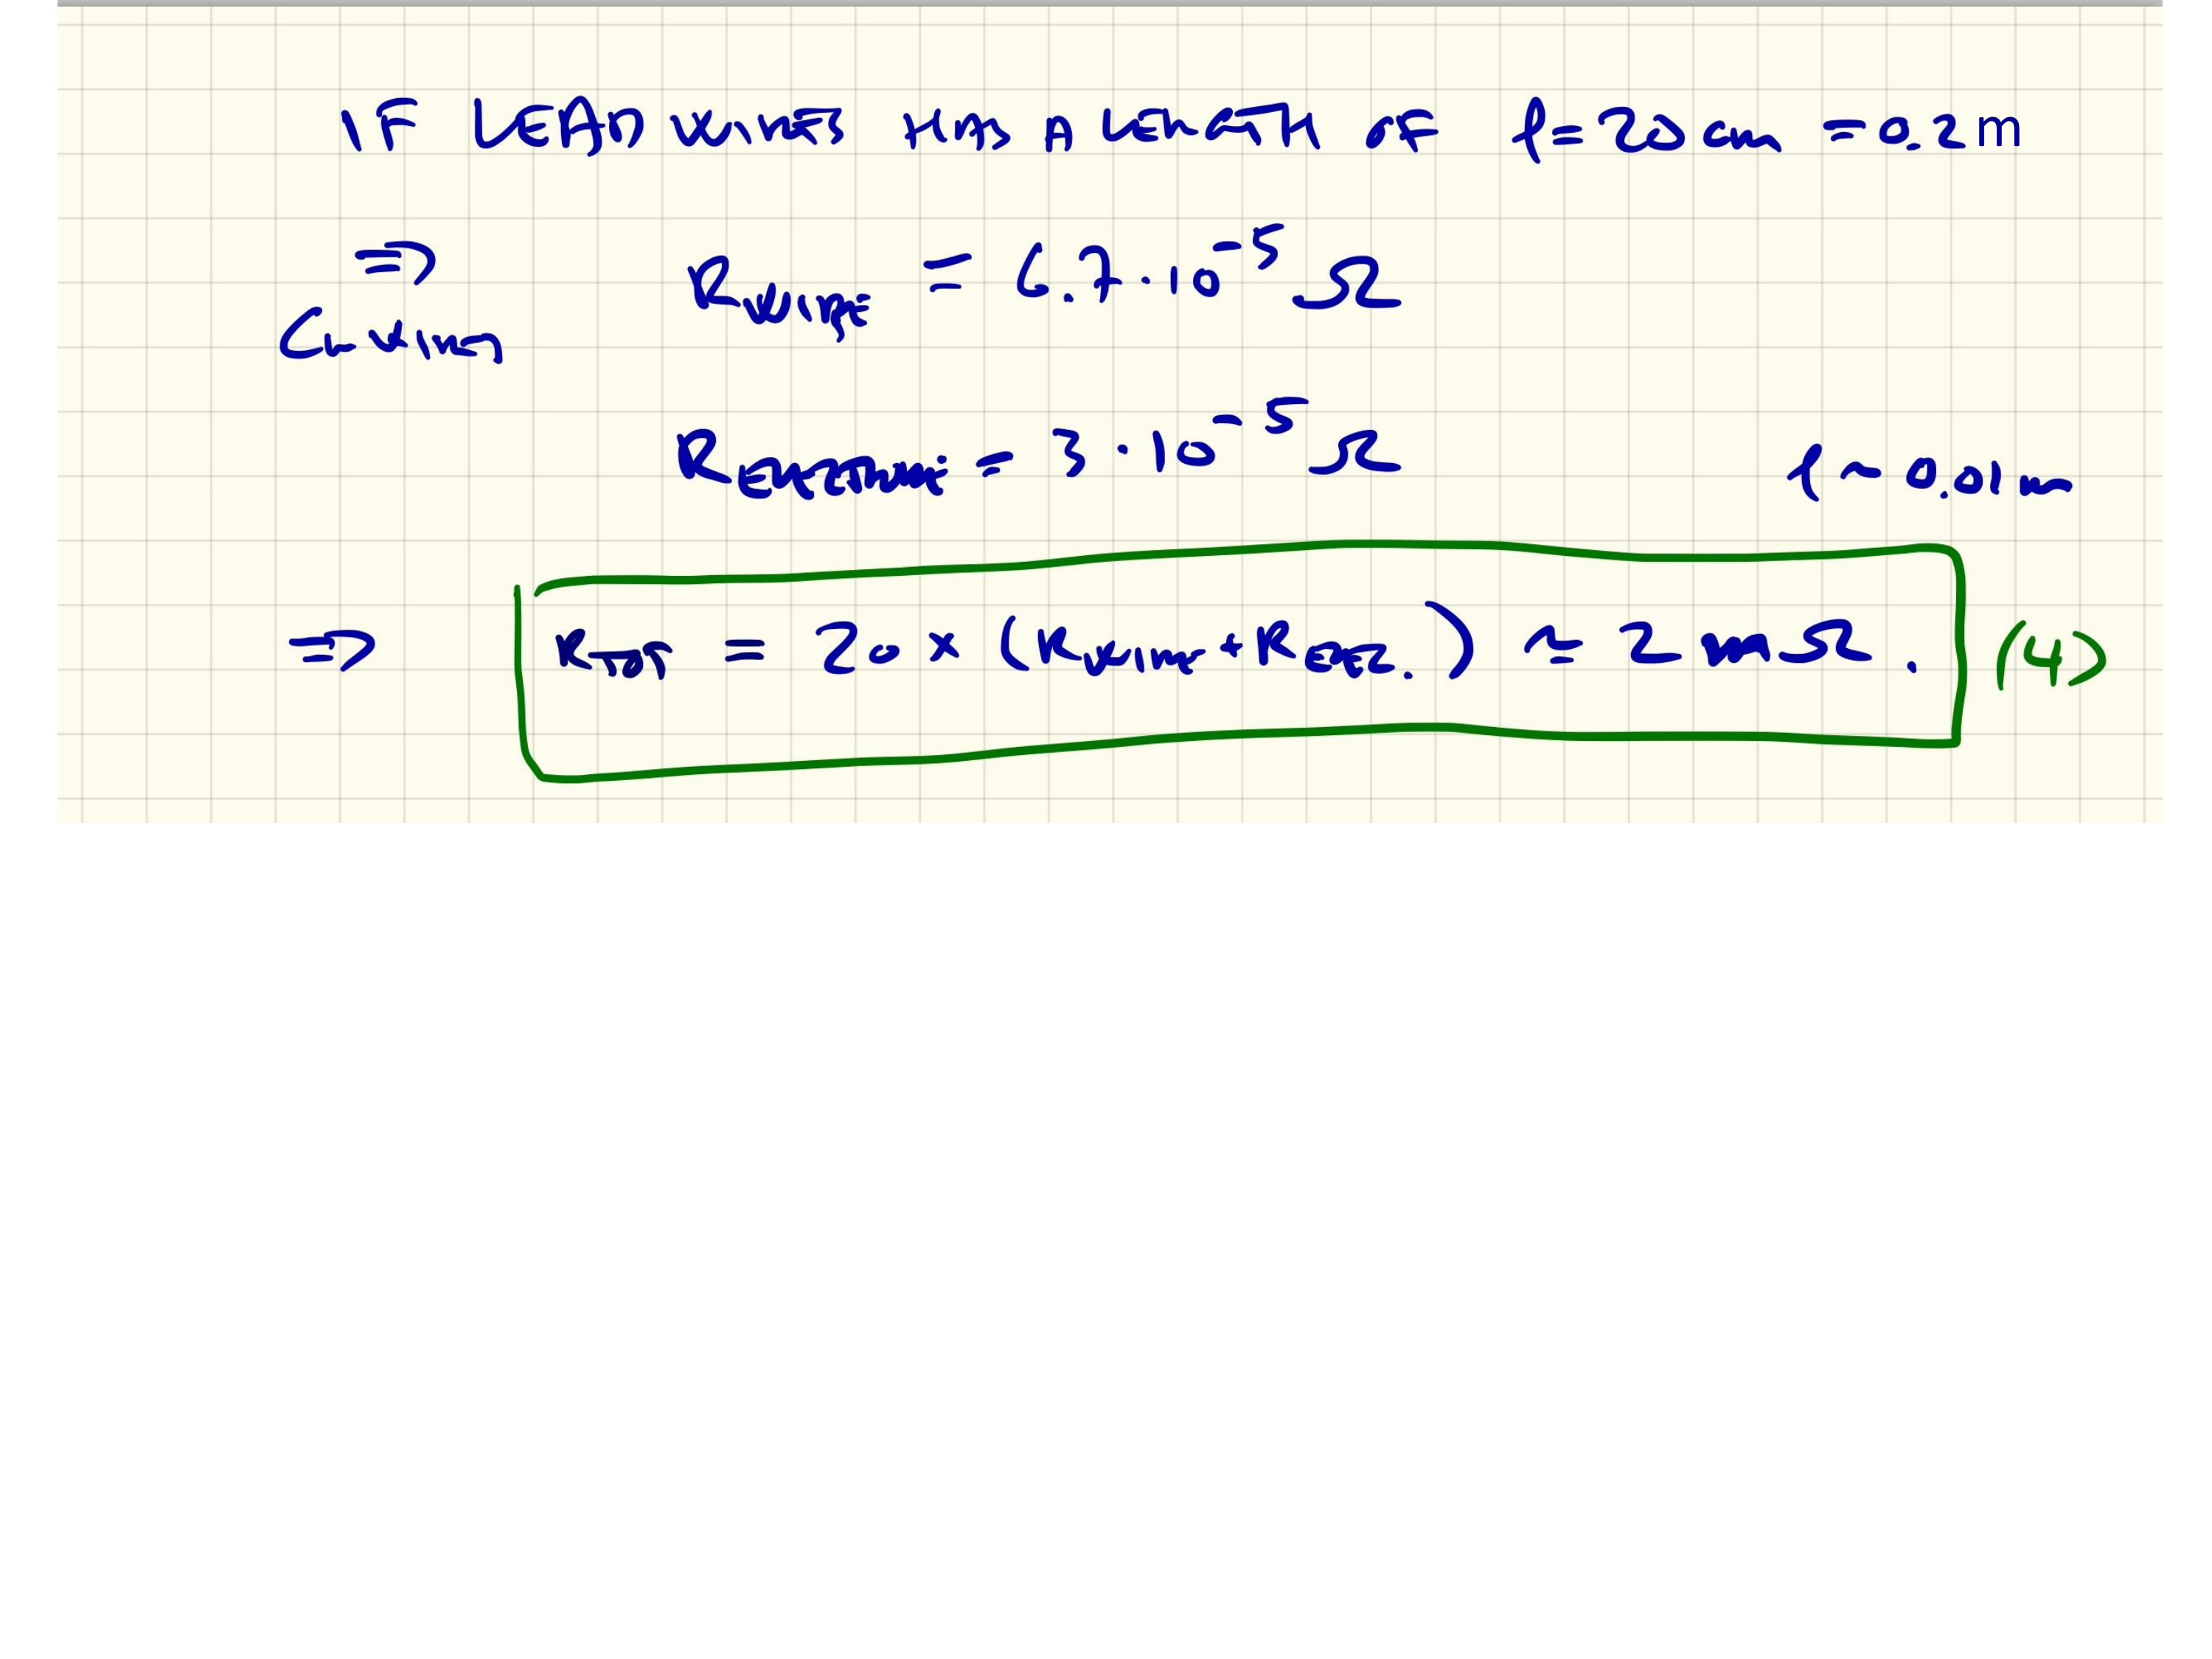 IF LEAD WIRES HAS A LENGTH OF l = 20 cm = 0.2 m
⇒ R_WIRE = 6.7 · 10^-5 Ω
R = 3 · 10^-5 Ω l ~ 0.01m
⇒ R_TOT = 20 × (R_WIRE + R) ≃ 2 mΩ . (4)